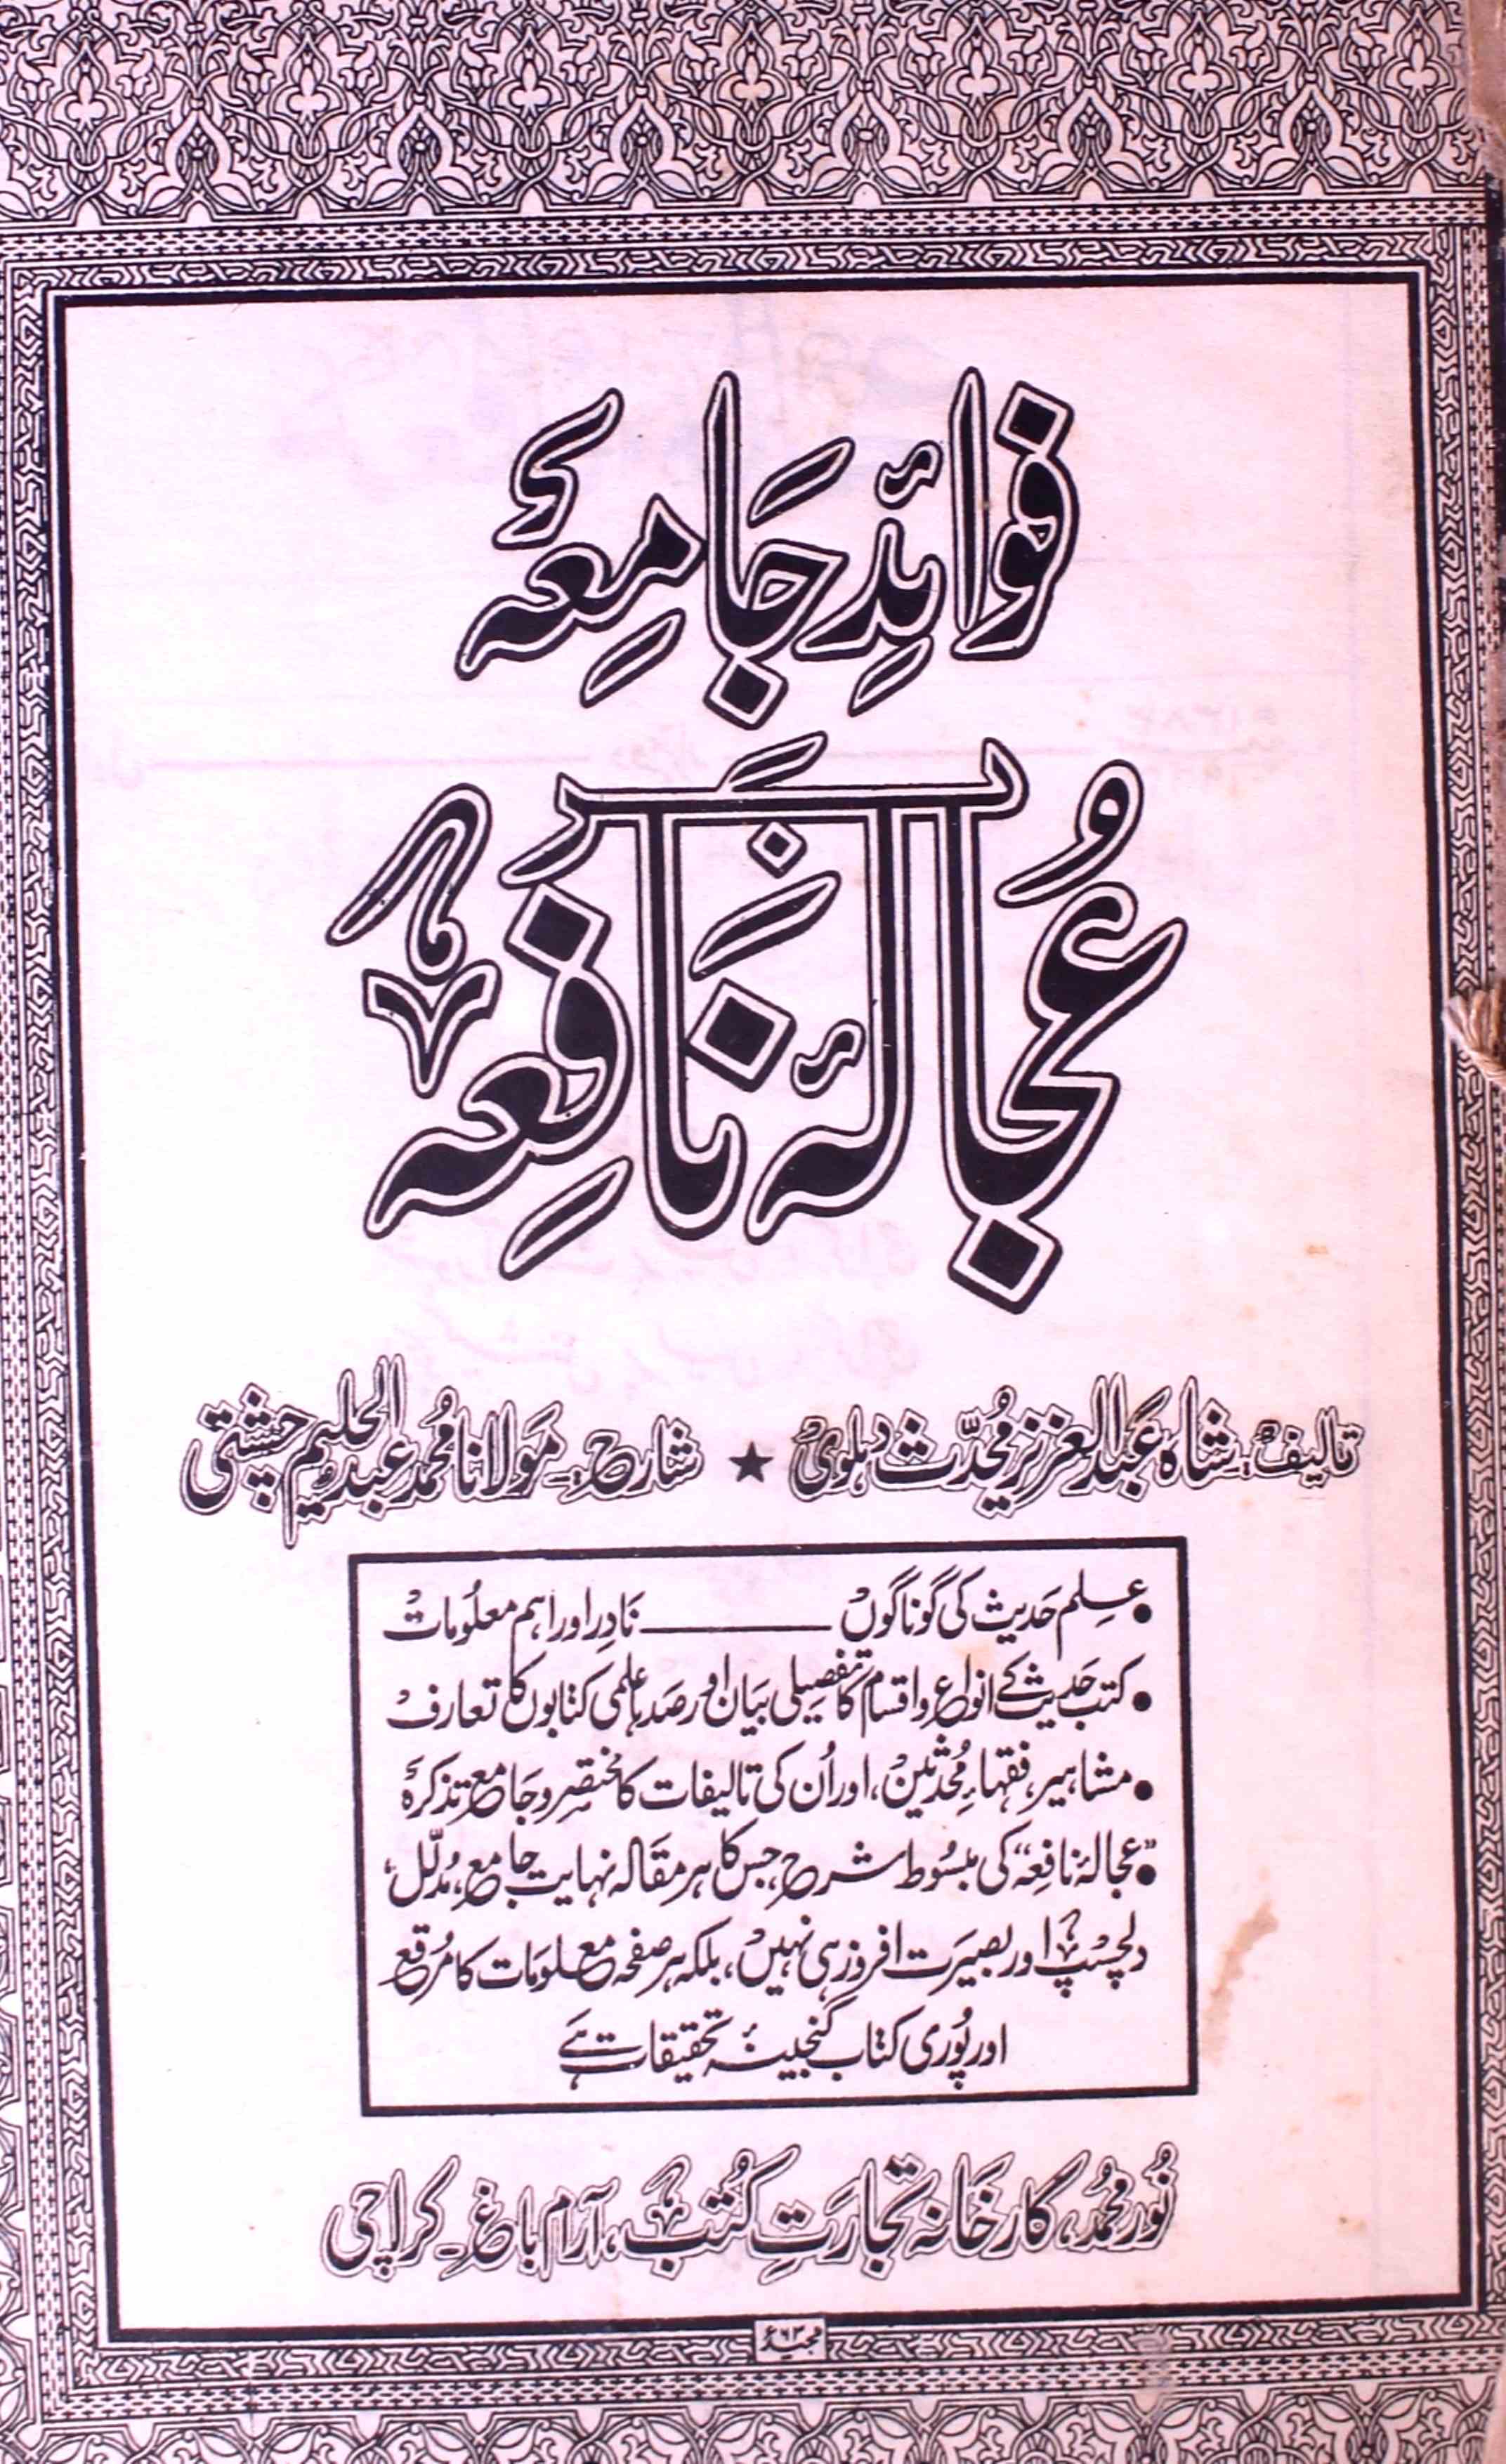 فوائدِ جامعۂ
بر
عُجالۂ نافِعہ
تالیف:۔ شاہ عبدالعزیز مُحدّث دہلویؒ ★ شارح:۔ مَولانا مُحمد عبدالحلیم چشتی
• عِلم حَدیث کی گوناگوں ــــــــــ نَادِر اور اہم معلُومات
• کتب حَدیث کے انواع و اقسام کا تفصیلی بیَان اور صدہا علمی کتابوں کا تعارف
• مشاہیر، فقہاء، مُحدثین، اور اُن کی تالیفات کا مُختصر و جَامع تذکرہ
• ”عجالۂ نافِعہ“ کی مبسُوط شرح، جس کا ہر مقالہ نہایت جامع، مُدلّل،
دلچسپ اور بصیرَت افروز ہی نہیں، بلکہ ہر صفحہ معلومَات کا مُرقع
اور پُوری کتاب گنجینۂ تحقیقات ہے
نُور محمُد، کارخَانہ تجارَتِ کُتب، آرام باغ۔ کراچی